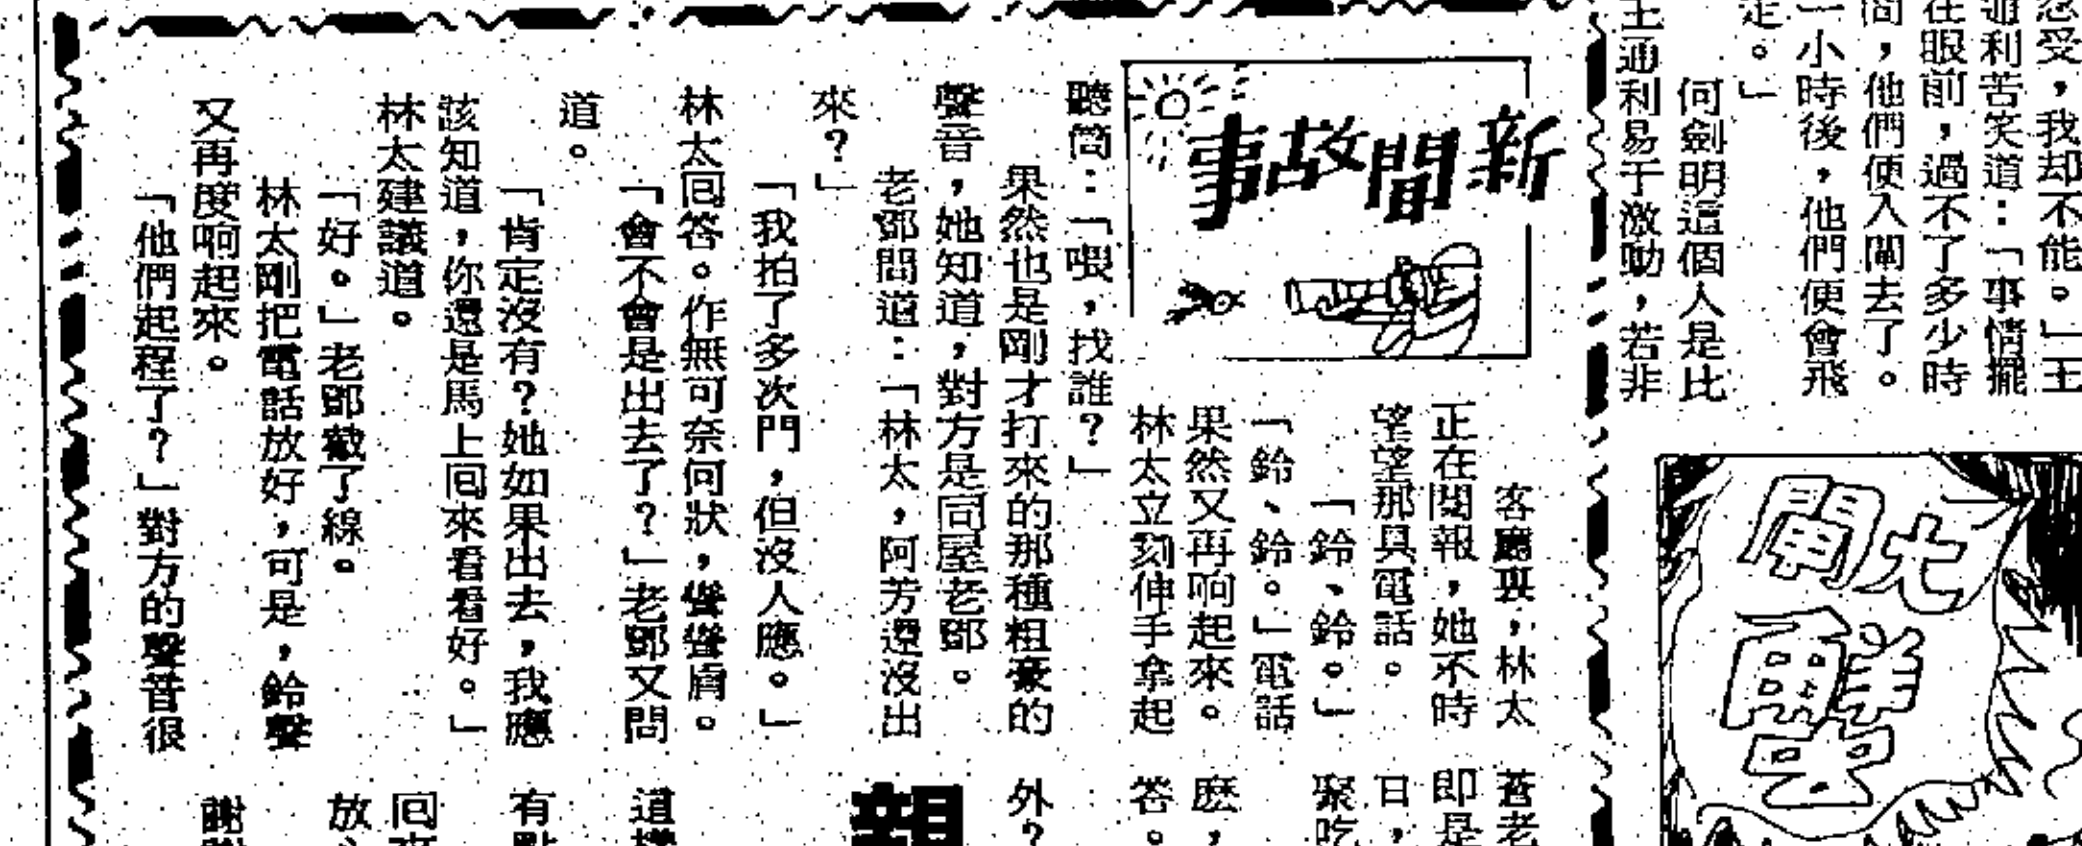 忍受，我却不能。」王
通利苦笑道：「事情擺
在眼前，過不了多少時
間，他們便入閘去了。
一小時後，他們便會飛
走。」
何劍明這個人是比
王通利易于激動，若非
新聞故事
客廳裏，林太
正在閱報，她不時
望望那具電話。
「鈴、鈴。」
「鈴、鈴。」電話
果然又再响起來。
林太立刻伸手拿起
聽筒：「喂，找誰？」
果然也是剛才打來的那種粗豪的
聲音，她知道，對方是同屋老鄧。
老鄧問道：「林太，阿芳還沒出
來？」
「我拍了多次門，但沒人應。」
林太囘答。作無可奈何狀，聳聳肩。
「會不會是出去了？」老鄧又問
道。
「肯定沒有？她如果出去，我應
該知道，你還是馬上囘來看看好。」
林太建議道。
「好。」老鄧截了線。
林太剛把電話放好，可是，鈴聲
又再度响起來。
「他們起程了？」對方的聲音很
七
鬧
蒼老
即是
日，
聚吃
麽，
答。
外？
親
道
有點
囘來
放心
謝謝